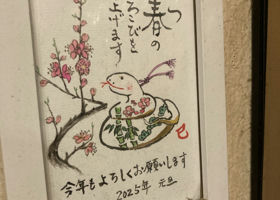 春の
よろこびを
上げます
巳
今年もよろしくお願いします
2025年 元旦